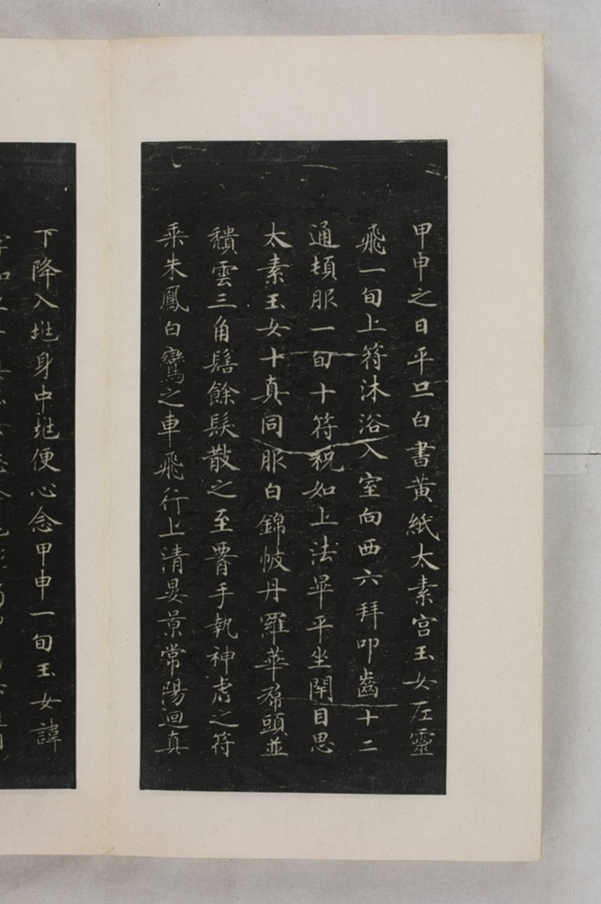 甲申之日平旦白書黃紙太素宮玉女左靈
飛一旬上符沐浴入室向西六拜叩齒十二
通頓服一旬十符祝如上法畢平坐閉目思
太素玉女十真同服白錦帔丹羅華帬頭並
穨雲三角髻餘髮散之至腰手執神虎之符
乘朱鳳白鸞之車飛行上清晏景常陽迴真
下降入兆身中兆便心念甲申一旬玉女諱